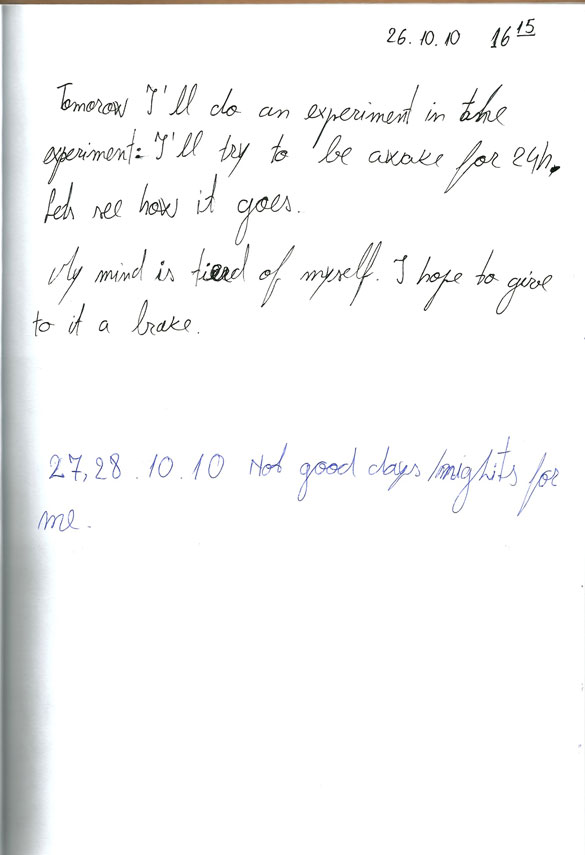 26.10.10 16 15
Tomorow I'll do an experiment in the
experiment: I'll try to be awake for 24h.
Lets see how it goes.
My mind is tierd of myself. I hope to give
to it a brake.
27,28.10.10 Not good days/nights for
me.